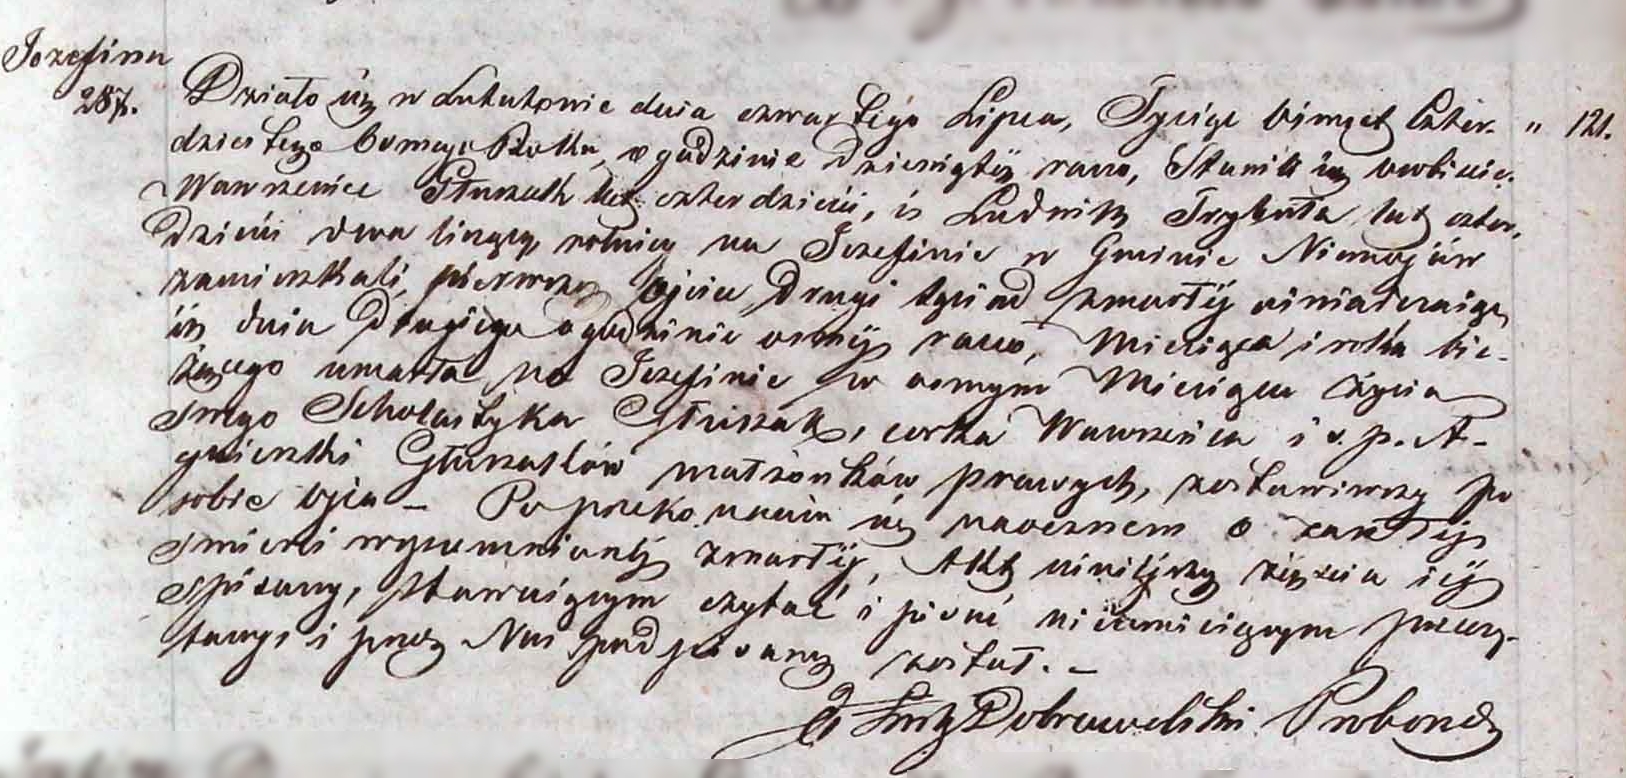 Jozefina
287.
Działo się w Lututowie dnia czwartego Lipca, Tysiąc ośmset Czter- " 121.
dziestego ósmego Roku, o godzinie dziesiątéj rano, Stawili się osobiście
Wawrzeniec Głuszak lat czterdzieści, is Ludwik Trybuła lat czter,
dzieści dwa liczący, rolnicy na Jozefinie w Gminie Niemojów
zamieszkali, pierwszy ojciec, drugi sąsiad zmarłéj oświadczając,
iż dnia Drugiego o godzinie osméj rano, Miesiąca i roku bie-
żącego umarła na Jozefinie w osmym Miesiącu życia
swego Scholastyka Głuszak, corka Wawrzeńca i ś. p. A-
gnieszki Głuszaków małżonków prawych, zostawiwszy po
sobie ojca – Po przekonaniu się naocznem o zaszłéj
śmierci wyspomnionéj zmarłéj, Akt niniéjszy zięścia iéj
spisany, stawaiącym czytać i pisać nieumieiącym przeczy-
tany, i przez Nas podpisany został. –
X Dobrowolski Proboszcz